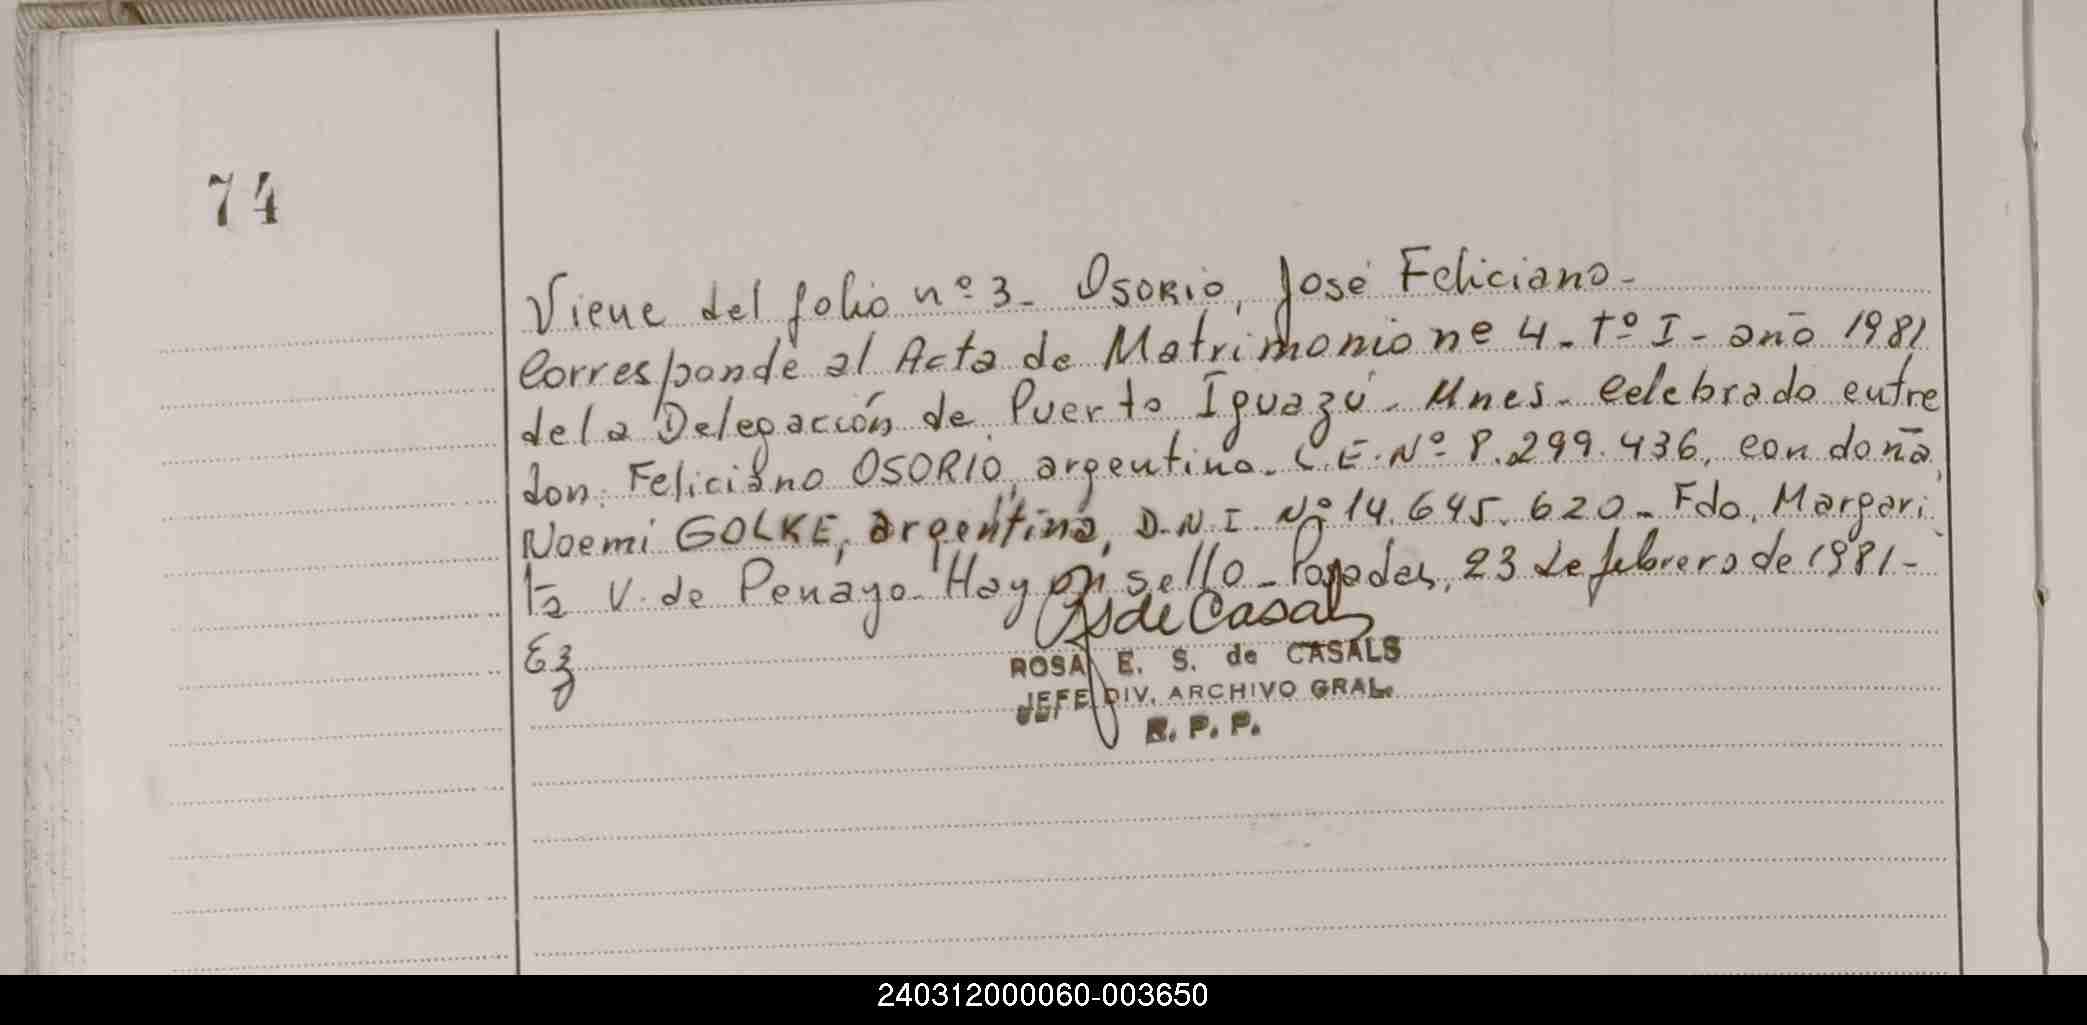 74
Viene del folio nº 3- OSORIO, José Feliciano-
Corresponde al Acta de Matrimonio nº 4- tº I- año 1981
de la Delegación de Puerto Iguazú- Mnes- celebrado entre
don: Feliciano OSORIO, argentino- C.E. Nº 8.299.436, con doña,
Noemi GOLKE, argentina, D.N.I. Nº 14.645.620- Fdo. Margari
ta V. de Penayo- Hay un sello- Posadas, 23 de febrero de 1981-
Ez
RS de Casals
ROSA E. S. de CASALS
JEFE DIV. ARCHIVO GRAL.
R. P. P.
240312000060-003650